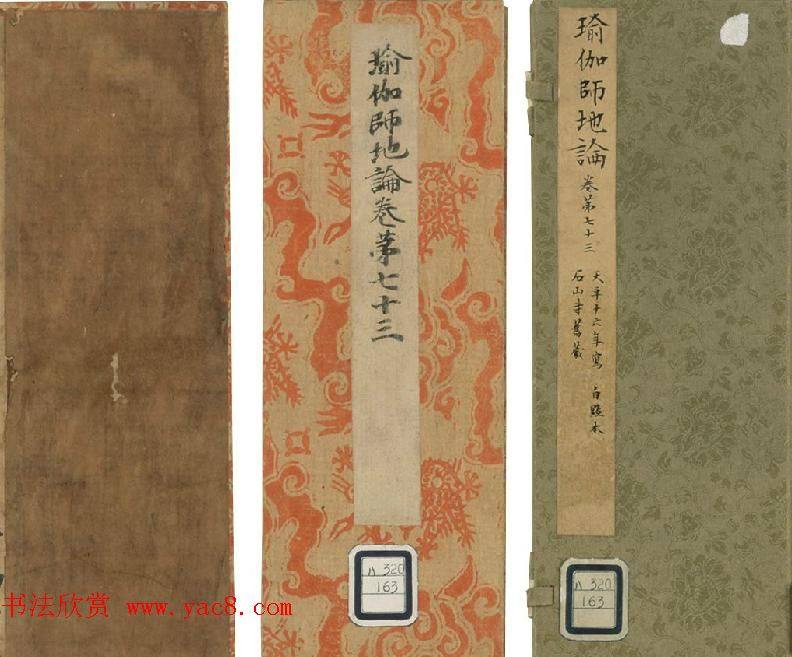 瑜伽師地論卷第七十三
瑜伽師地論
卷第七十三
天平十六年寫
白點本
石山寺舊藏
320
163
320
163
书法欣赏 www.yac8.com